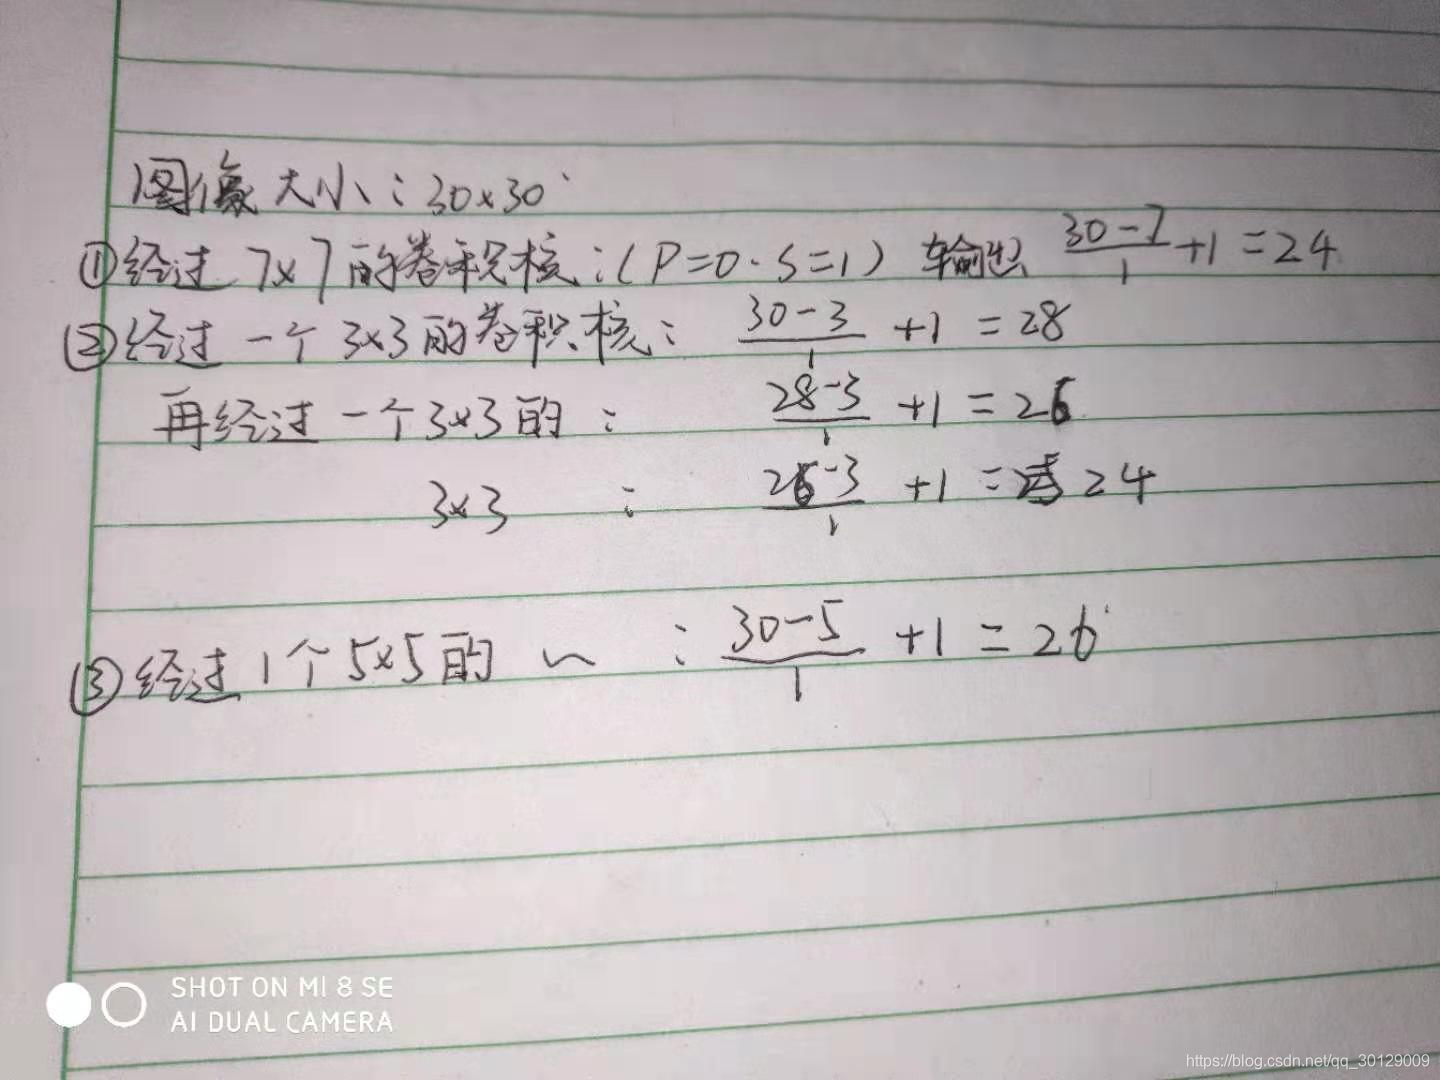 图像大小：30×30
①经过 7×7的卷积核：(P=0.S=1) 输出 (30-7)/1+1=24
②经过一个3×3的卷积核： (30-3)/1+1=28
再经过一个3×3的： (28-3)/1+1=26
3×3 ： (26-3)/1+1= 24
③经过1个5×5的 ～ ： (30-5)/1+1=26
SHOT ON MI 8 SE
AI DUAL CAMERA
https://blog.csdn.net/qq_30129009